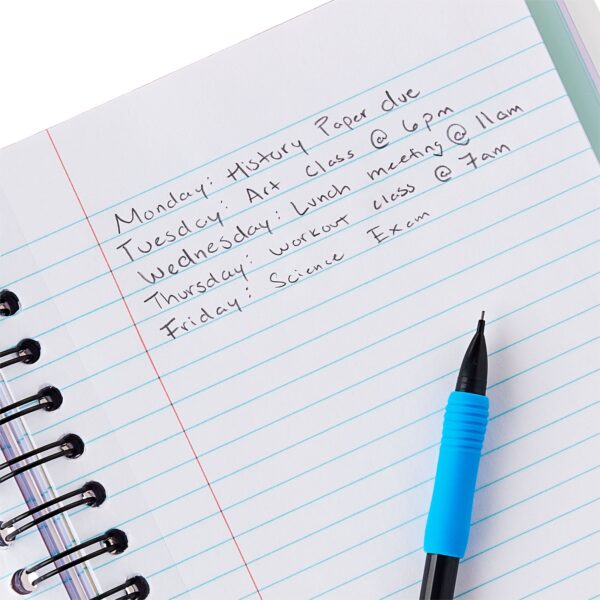 Monday: History Paper due
Tuesday: Art class @ 6pm
Wednesday: Lunch meeting @ 11am
Thursday: workout class @ 7am
Friday: Science Exam